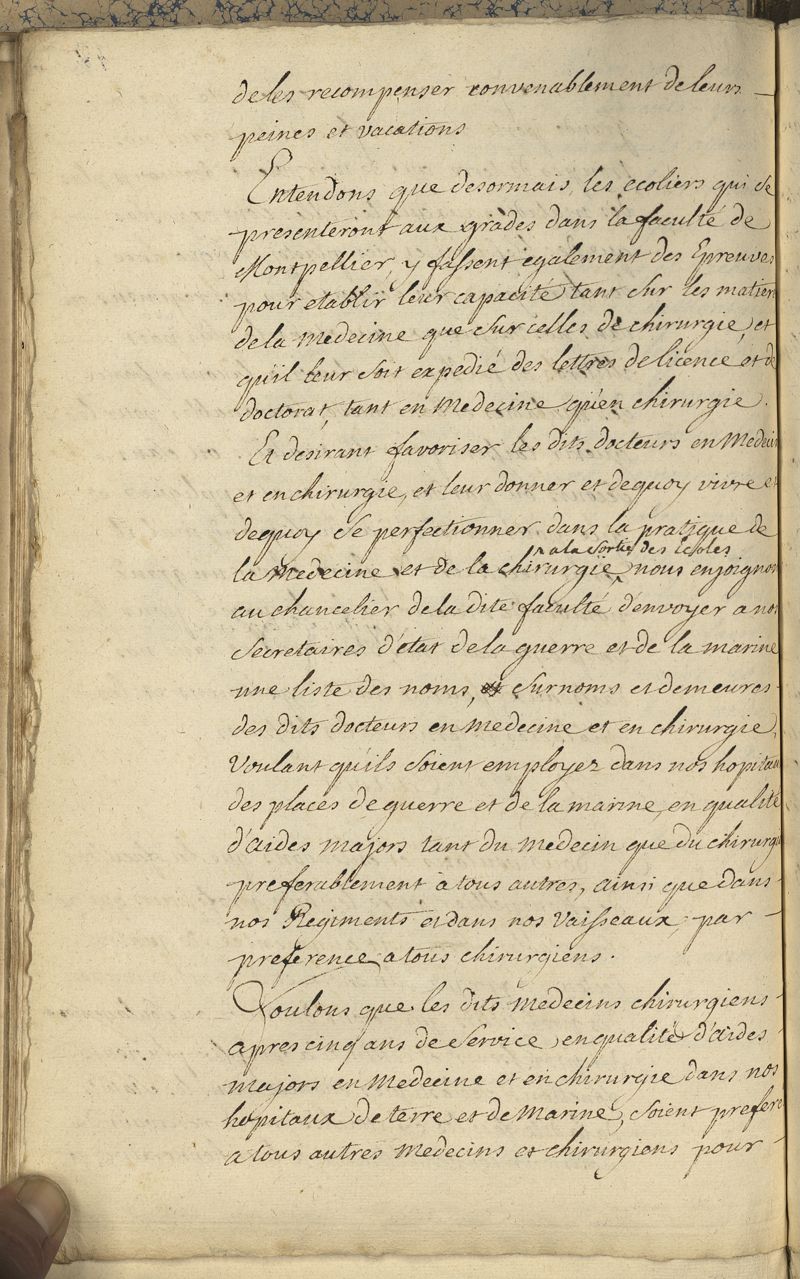 de les recompenser convenablement de leurs
peines et vacations
Entendons que desormais, les ecoliers qui se
presenteront aux grades dans la faculté de
Montpellier, y fassent egalement des Epreuves
pour etablir leur capacité tant sur les matier
de la medecine que sur celles de chirurgie, et
qu'il leur soit expedié des lettres de licence et de
doctorat, tant en medecine qu'en chirurgie.
Et desirant favoriser les dits docteurs en medecin
et en chirurgie, et leur donner et dequoy vivre et
dequoy se perfectionner dans la pratique de
a la sortie des Ecoles
la medecine et de la chirurgie nous enjoignon
au chancelier de la dite faculté d'envoyer a nos
secretaires d'état de la guerre et de la marine
une liste des noms, surnoms et demeures
des dits docteurs en medecine et en chirurgie,
Voulant qu'ils soient employez dans nos hopitau
des places de guerre et de la marine, en qualité
d'aides majors tant du medecin que du chirurgi
preferablement a tous autres, ainsi que dans
nos Regiments et dans nos Vaisseaux, par
preference a tous chirurgiens.
Voulons que les dits medecins chirurgiens
apres cinq ans de service, en qualité d'aides
majors en medecine et en chirurgie dans nos
hopitaux de terre et de marine, soient prefere
a tous autres medecins et chirurgiens pour